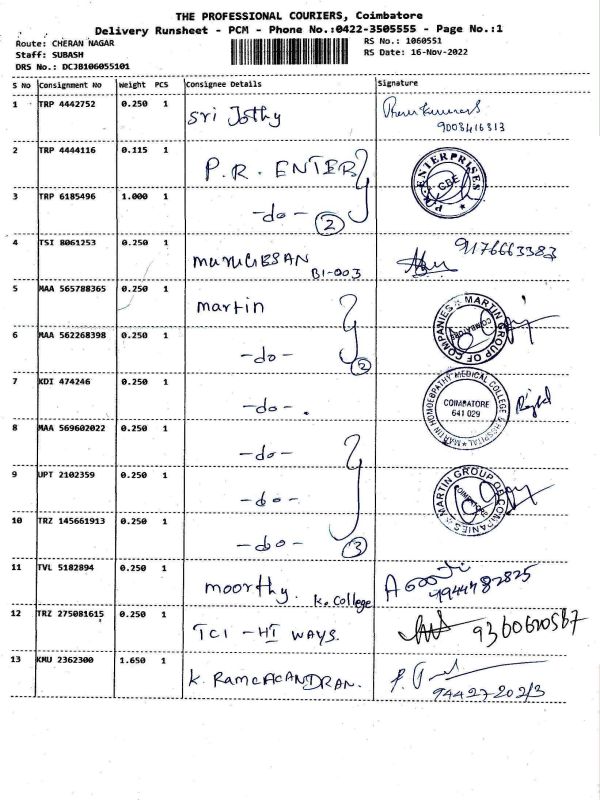 THE PROFESSIONAL COURIERS, Coimbatore
Delivery Runsheet - PCM - Phone No.:0422-3505555 - Page No.:1
Route: CHERAN NAGAR
RS No.: 1060551
Staff: SUBASH
RS Date: 16-Nov-2022
DRS No.: DCJB106055101
S No Consignment No Weight PCS Consignee Details Signature
1 TRP 4442752 0.250 1 Sri Jothy
9003416313
2 TRP 4444116 0.115 1 P.R. ENTER
P.R. ENTERPRISES CBE
3 TRP 6185496 1.000 1 -do- 2
4 TSI 8061253 0.250 1 MURUGESAN 9176663383
B1-003
5 MAA 565788365 0.250 1 martin
MARTIN GROUP OF COMPANIES COIMBATORE
6 MAA 562268398 0.250 1 -do- 2
7 KDI 474246 0.250 1 -do-.
MARTIN HOMOEOPATHY MEDICAL COLLEGE & HOSPITAL
COIMBATORE
641 029
8 MAA 569602022 0.250 1 -do-
9 UPT 2102359 0.250 1 -do-
MARTIN GROUP OF COMPANIES COIMBATORE
10 TRZ 145661913 0.250 1 -do- 3
11 TVL 5182894 0.250 1 moorthy. K. College
9444782825
12 TRZ 275081615 0.250 1 TCI - HI WAYS.
13 KMU 2362300 1.650 1 K. RAMCHANDRAN.
9442720213